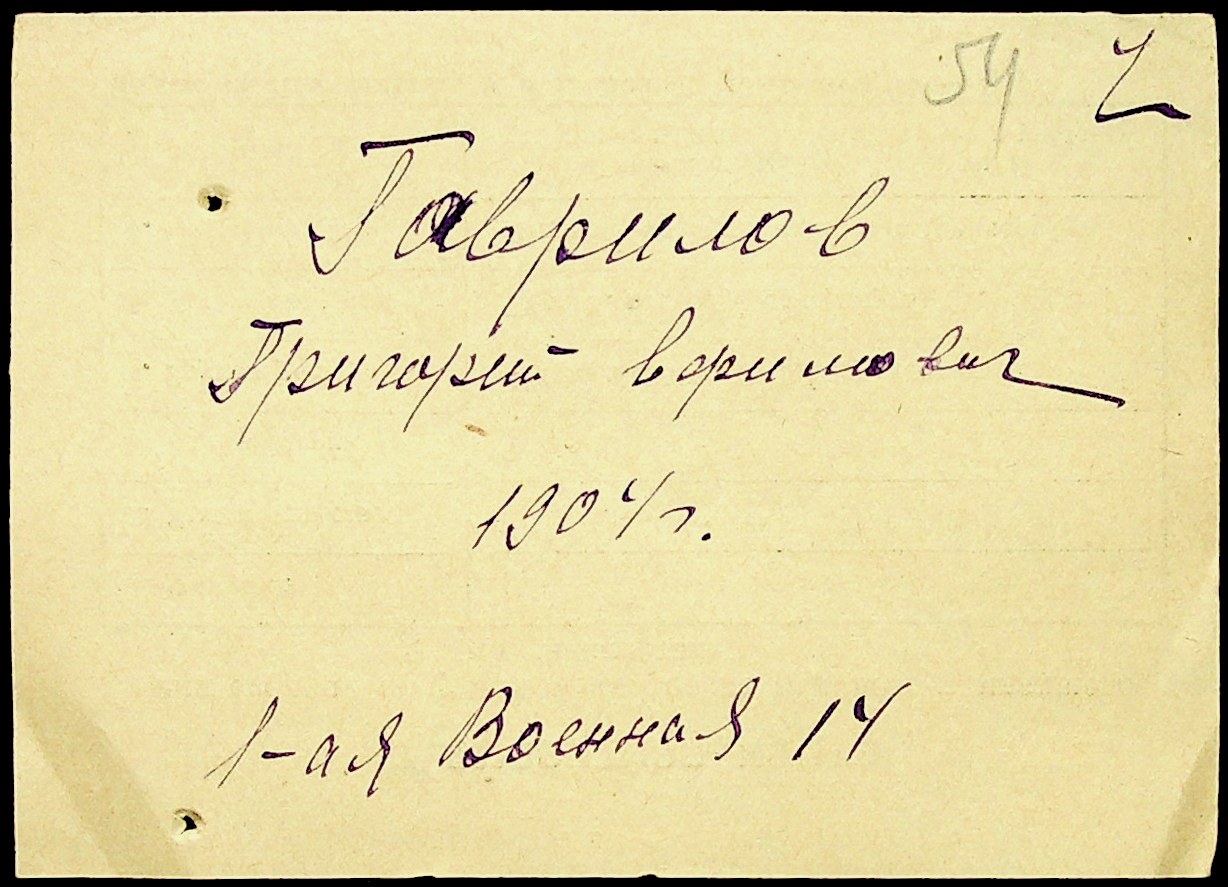 54
Гаврилов
Григорий
1904 г.
1-ая Военная 14